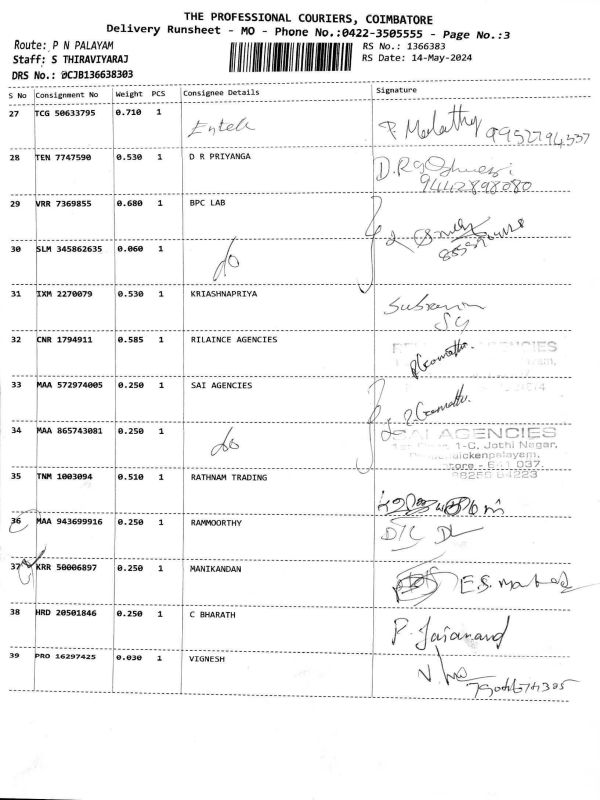 THE PROFESSIONAL COURIERS, COIMBATORE
Delivery Runsheet - MO - Phone No.:0422-3505555 - Page No.:3
Route: P N PALAYAM
RS No.: 1366383
Staff: S THIRAVIYARAJ
RS Date: 14-May-2024
DRS No.: 0CJB136638303
S No Consignment No Weight PCS Consignee Details Signature
27 TCG 50633795 0.710 1 P. Malathy
28 TEN 7747590 0.530 1 D R PRIYANGA D.R
9442898080
29 VRR 7369855 0.680 1 BPC LAB
30 SLM 345862635 0.060 1 do
31 IXM 2270079 0.530 1 KRIASHNAPRIYA
32 CNR 1794911 0.585 1 RILAINCE AGENCIES
33 MAA 572974005 0.250 1 SAI AGENCIES
34 MAA 865743081 0.250 1 do
SAI AGENCIES
1-C, Jothi Nagar,
35 TNM 1003094 0.510 1 RATHNAM TRADING
36 MAA 943699916 0.250 1 RAMMOORTHY
37 KRR 50006897 0.250 1 MANIKANDAN E.S.
38 HRD 20501846 0.250 1 C BHARATH P. Jaianand
39 PRO 16297425 0.030 1 VIGNESH